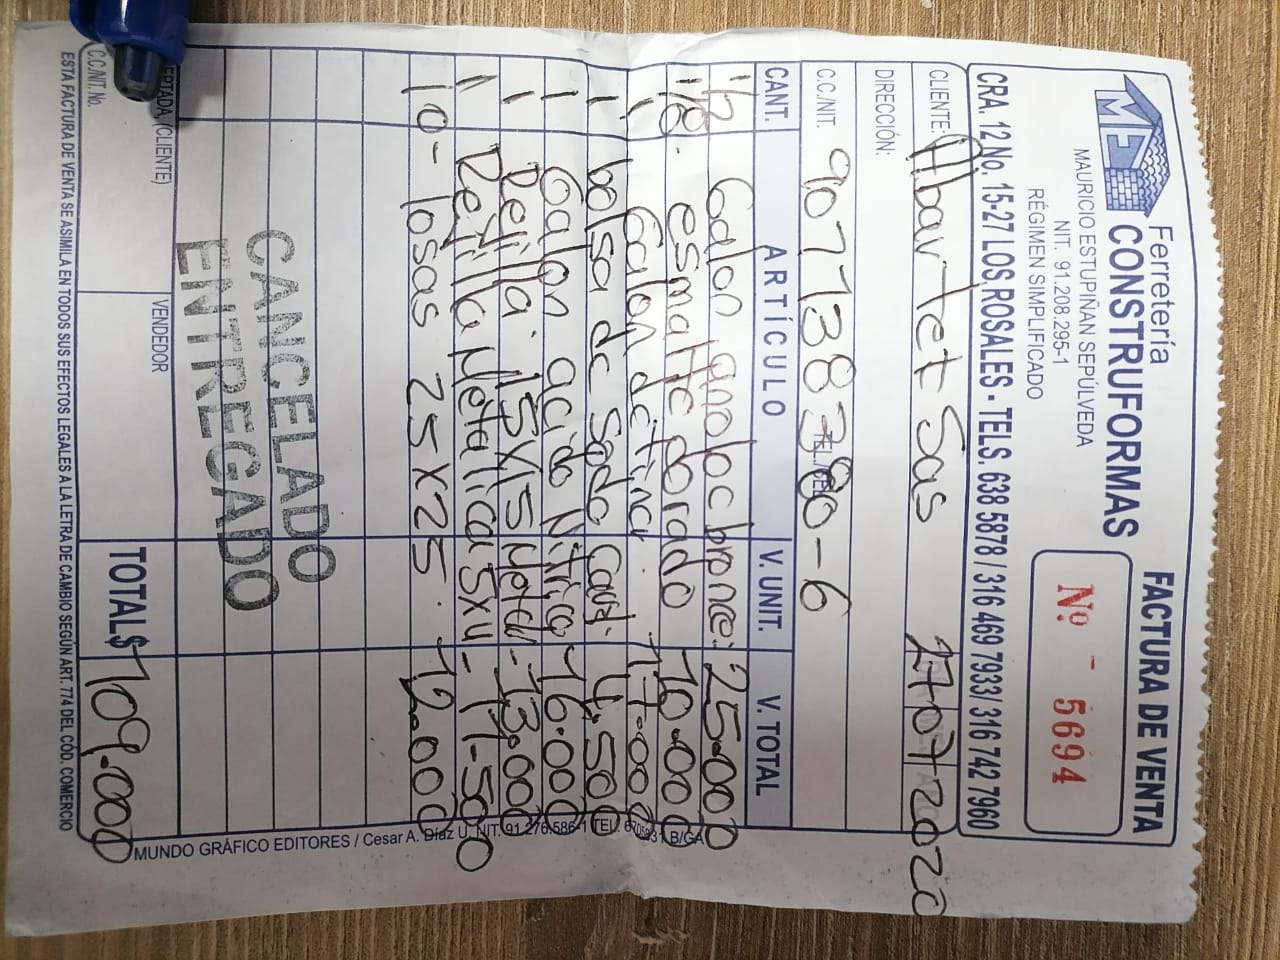 ME
Ferretería
CONSTRUFORMAS
MAURICIO ESTUPIÑAN SEPÚLVEDA
NIT. 91.208.295-1
RÉGIMEN SIMPLIFICADO
FACTURA DE VENTA
Nº 5694
CRA. 12 No. 15-27 LOS ROSALES - TELS. 638 5878 / 316 469 7933/ 316 742 7960
CLIENTE: Abartet Sas 27 07 2020
DIRECCIÓN:
C.C./NIT. 907738380-6
CANT. ARTÍCULO V. UNIT. V. TOTAL
1/2 Galon anoloc bronce 25.000
1/8 esmalte dorado 10.000
1 Galon de tiner 17.000
1 bolsa de Soda Caust 4.500
1 Galon acido Nitrico 16.000
1 Rejilla 15X15 Metal 13.000
1 Rejilla Metalica 5x4 11.500
10 - losas 25X25 12.000
CANCELADO
ENTREGADO
(CLIENTE)
C.C./NIT. No.
VENDEDOR
TOTAL $ 109.000
ESTA FACTURA DE VENTA SE ASIMILA EN TODOS SUS EFECTOS LEGALES A LA LETRA DE CAMBIO SEGÚN ART. 774 DEL CÓD. COMERCIO
MUNDO GRÁFICO EDITORES / Cesar A. Díaz U. NIT. TEL. B/GA